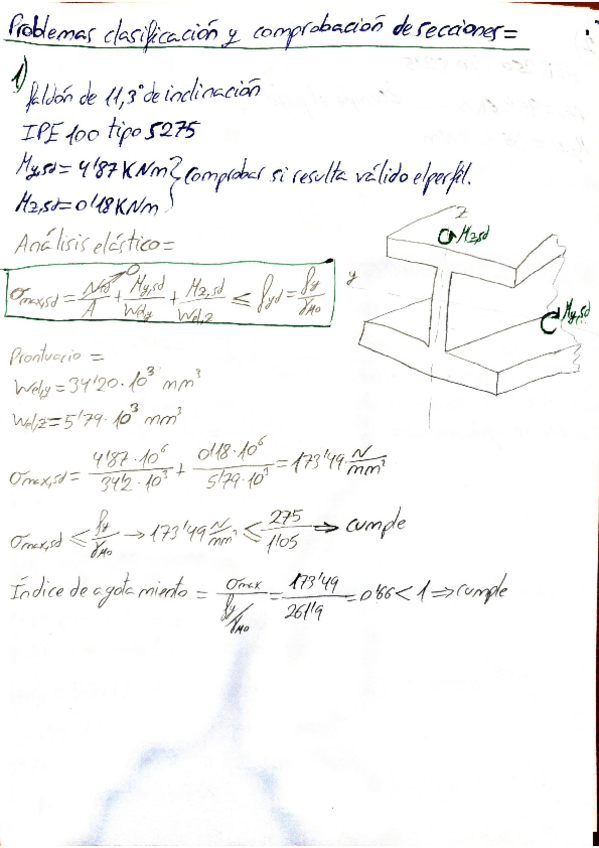 Problemas clasificación y comprobación de secciones =
1)
faldón de 11,3° de inclinación
IPE 100 tipo S275
My,sd = 4'87 KNm } comprobar si resulta válido el perfil.
Mz,sd = 0'18 KNm
z
Mz,sd
Análisis elástico =
y
My,sd
σmax,sd = Nsd/A + My,sd/Wel,y + Mz,sd/Wel,z ≤ fyd = fy/γM0
0
Prontuario =
Wel,y = 34'20·10³ mm³
Wel,z = 5'79·10³ mm³
σmax,sd = 4'87·10⁶/34'2·10³ + 0'18·10⁶/5'79·10³ = 173'49 N/mm²
σmax,sd ≤ fy/γM0 → 173'49 N/mm² ≤ 275/1'05 ⇒ cumple
Índice de agotamiento = σmax/fy/γM0 = 173'49/261'9 = 0'66 < 1 ⇒ cumple